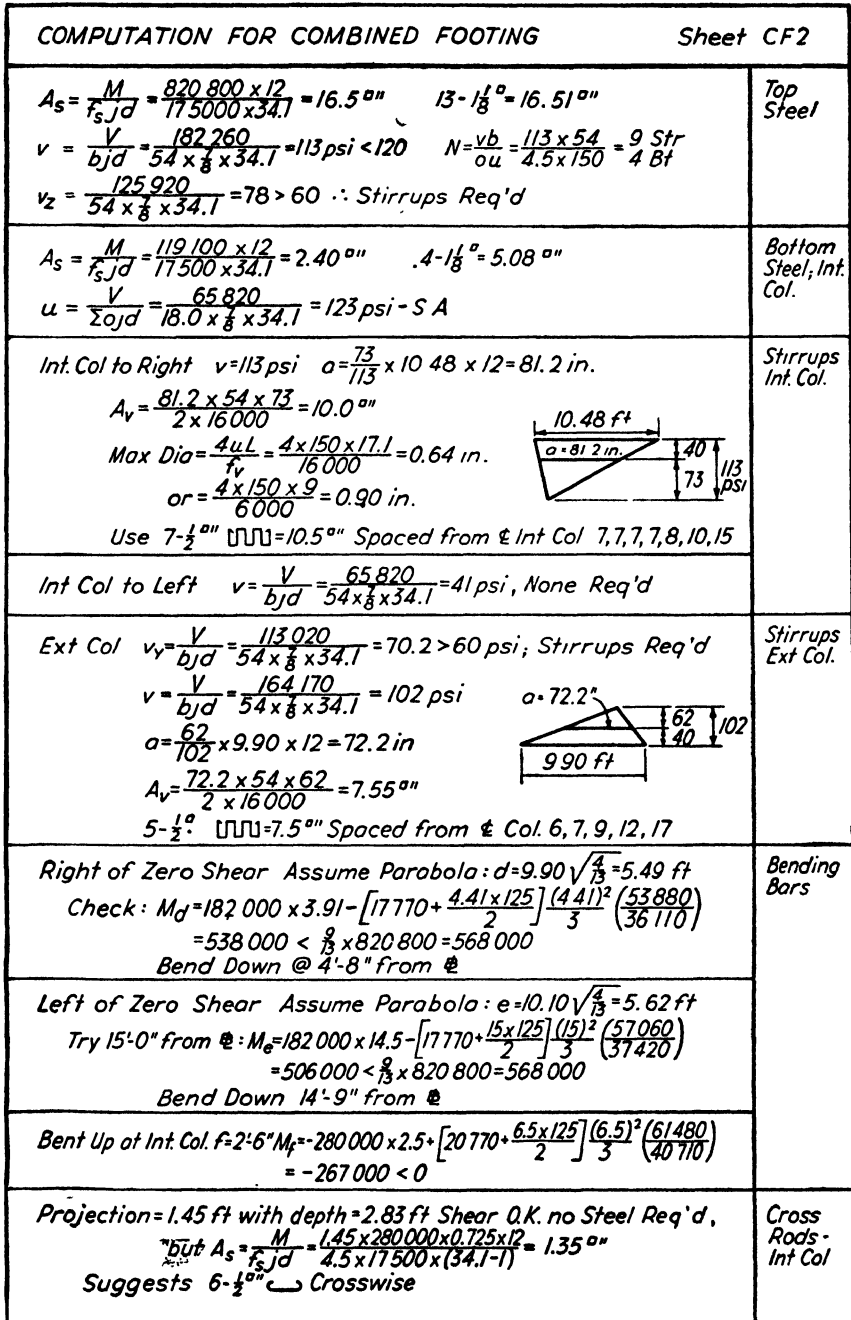 COMPUTATION FOR COMBINED FOOTING Sheet CF2
A_s = M/(f_s jd) = (820 800 x 12)/(17 5000 x 34.1) = 16.5 □" 13 - 1 1/8 □ = 16.51 □" Top Steel
v = V/(bjd) = 182 260/(54 x 7/8 x 34.1) = 113 psi < 120 N = vb/ou = (113 x 54)/(4.5 x 150) = 9 Str 4 Bt
v_z = 125 920/(54 x 7/8 x 34.1) = 78 > 60 ∴ Stirrups Req'd
A_s = M/(f_s jd) = (119 100 x 12)/(17 500 x 34.1) = 2.40 □" .4 - 1 1/8 □ = 5.08 □" Bottom Steel; Int. Col.
u = V/(Σojd) = 65 820/(18.0 x 7/8 x 34.1) = 123 psi - S A
Int. Col to Right v = 113 psi a = 73/113 x 10 48 x 12 = 81.2 in. Stirrups Int. Col.
A_v = (81.2 x 54 x 73)/(2 x 16 000) = 10.0 □"
Max Dia = 4uL/f_v = (4 x 150 x 17.1)/16 000 = 0.64 in.
or = (4 x 150 x 9)/6 000 = 0.90 in.
10.48 ft
a = 81 2 in.
40
73
113 psi
Use 7 - 1/2 □" = 10.5 □" Spaced from ℄ Int Col 7, 7, 7, 7, 8, 10, 15
Int Col to Left v = V/(bjd) = 65 820/(54 x 7/8 x 34.1) = 41 psi, None Req'd
Ext Col v_y = V/(bjd) = 113 020/(54 x 7/8 x 34.1) = 70.2 > 60 psi; Stirrups Req'd Stirrups Ext Col.
v = V/(bjd) = 164 170/(54 x 7/8 x 34.1) = 102 psi
a = 62/102 x 9.90 x 12 = 72.2 in
A_v = (72.2 x 54 x 62)/(2 x 16 000) = 7.55 □"
a = 72.2"
62
40
102
9 90 ft
5 - 1/2 □. = 7.5 □" Spaced from ℄ Col. 6, 7, 9, 12, 17
Right of Zero Shear Assume Parabola: d = 9.90 √(4/13) = 5.49 ft Bending Bars
Check: M_d = 182 000 x 3.91 - [17 770 + (4.41 x 125)/2] (4 41)²/3 (53 880/36 110)
= 538 000 < 9/13 x 820 800 = 568 000
Bend Down @ 4'-8" from ⅊
Left of Zero Shear Assume Parabola: e = 10.10 √(4/13) = 5.62 ft
Try 15'-0" from ⅊: M_e = 182 000 x 14.5 - [17 770 + (15 x 125)/2] (15)²/3 (57 060/37 420)
= 506 000 < 9/13 x 820 800 = 568 000
Bend Down 14'-9" from ⅊
Bent Up at Int. Col. f = 2'-6" M_f = -280 000 x 2.5 + [20 770 + (6.5 x 125)/2] (6.5)²/3 (61 480/40 710)
= -267 000 < 0
Projection = 1.45 ft with depth = 2.83 ft Shear O.K. no Steel Req'd, Cross Rods - Int Col
but A_s = M/(f_s jd) = (1.45 x 280 000 x 0.725 x 12)/(4.5 x 17 500 x (34.1 - 1)) = 1.35 □"
Suggests 6 - 1/2 □" Crosswise